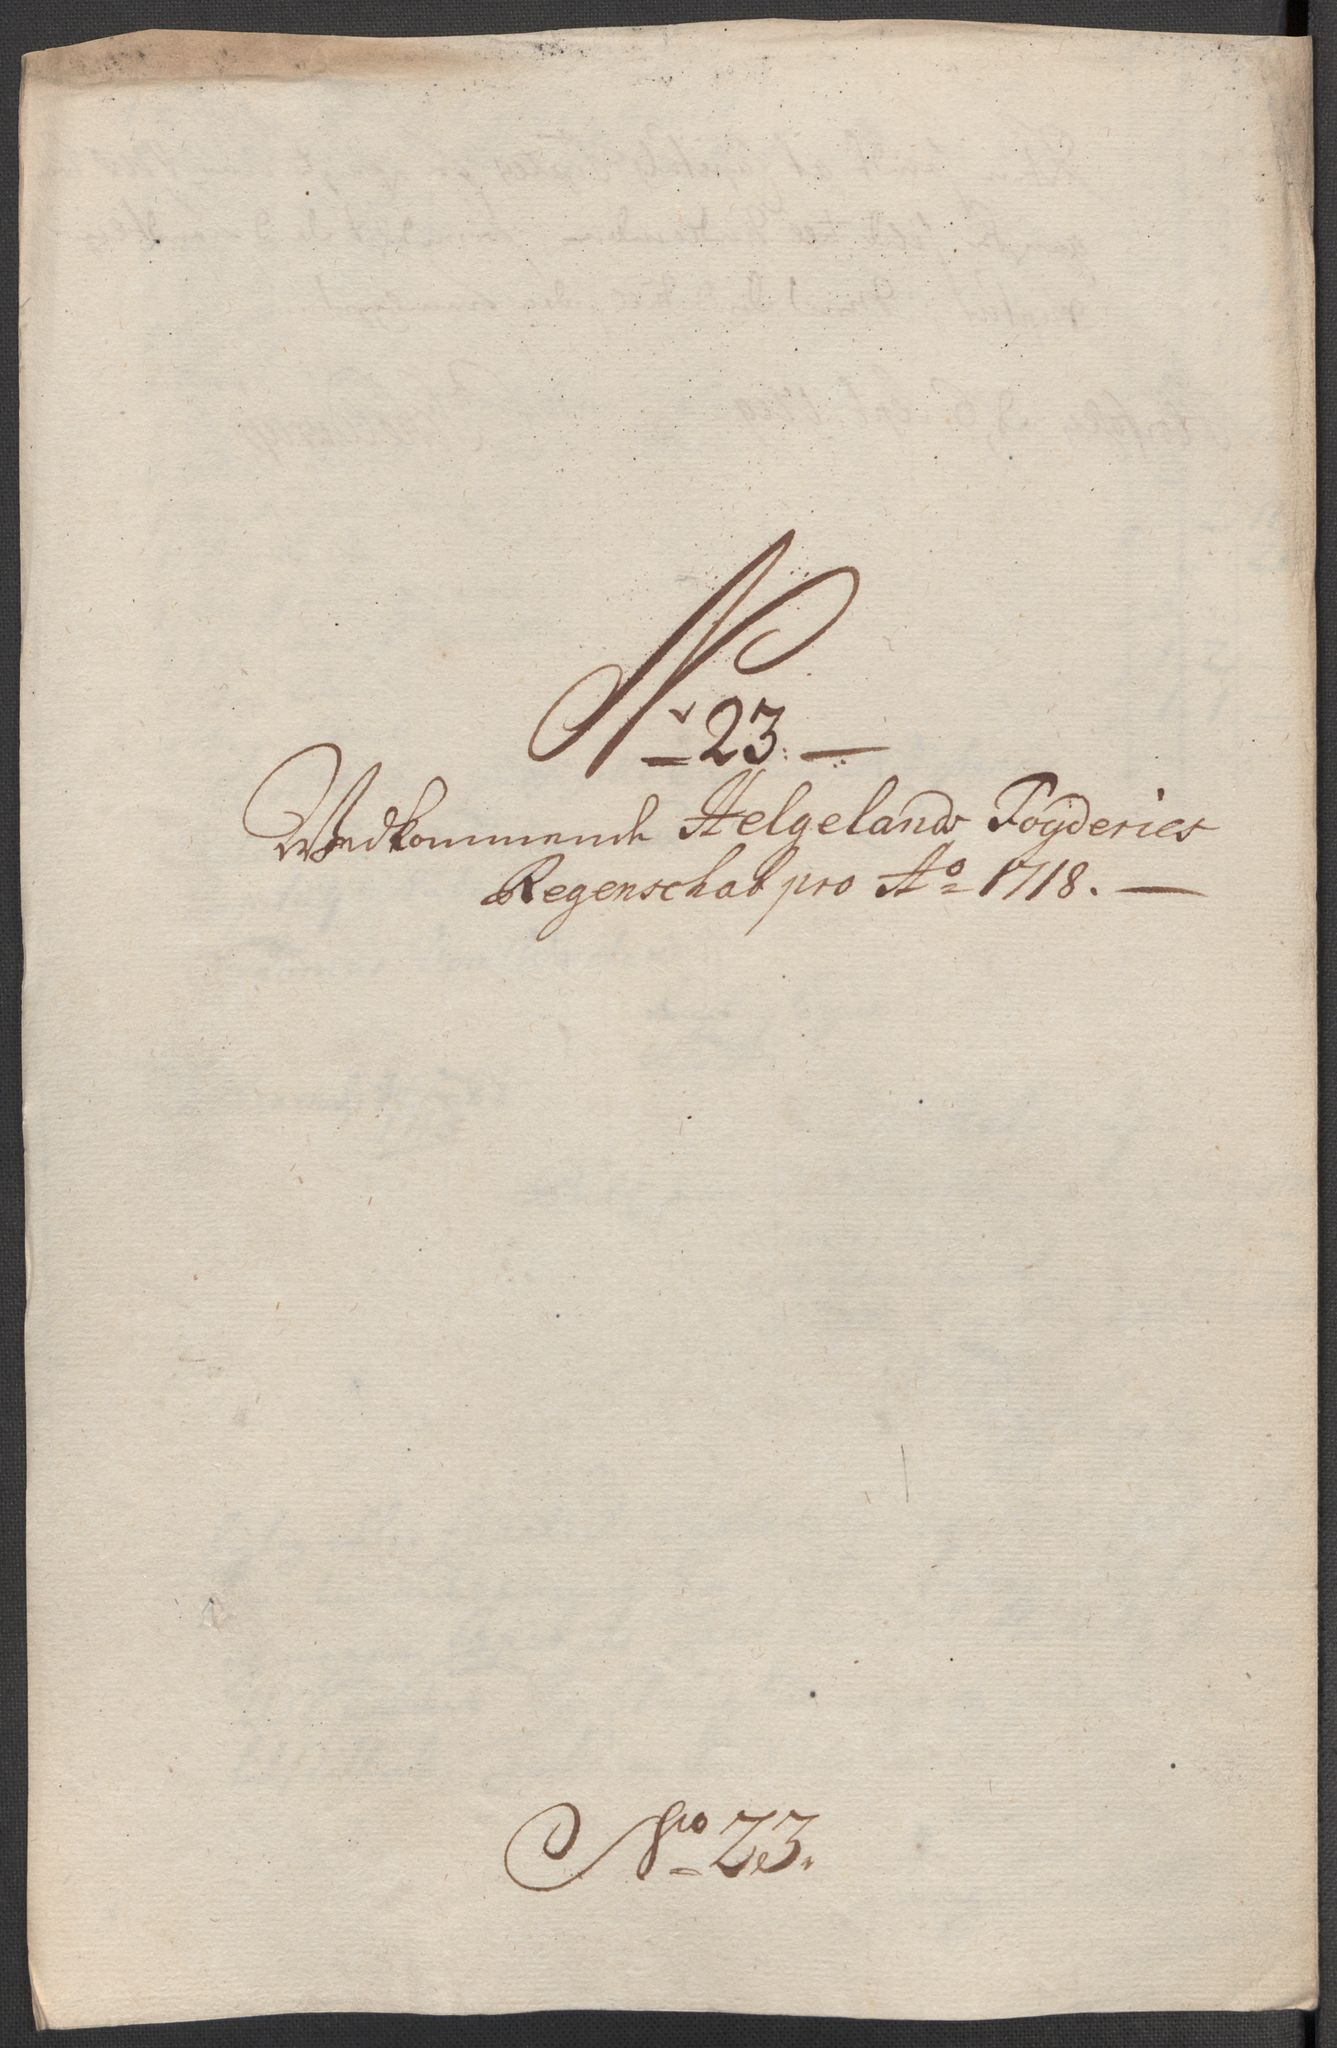 No 23.
Vedkommende Helgelands Fogderies
Regenschab pro Ao 1718.
No 23.